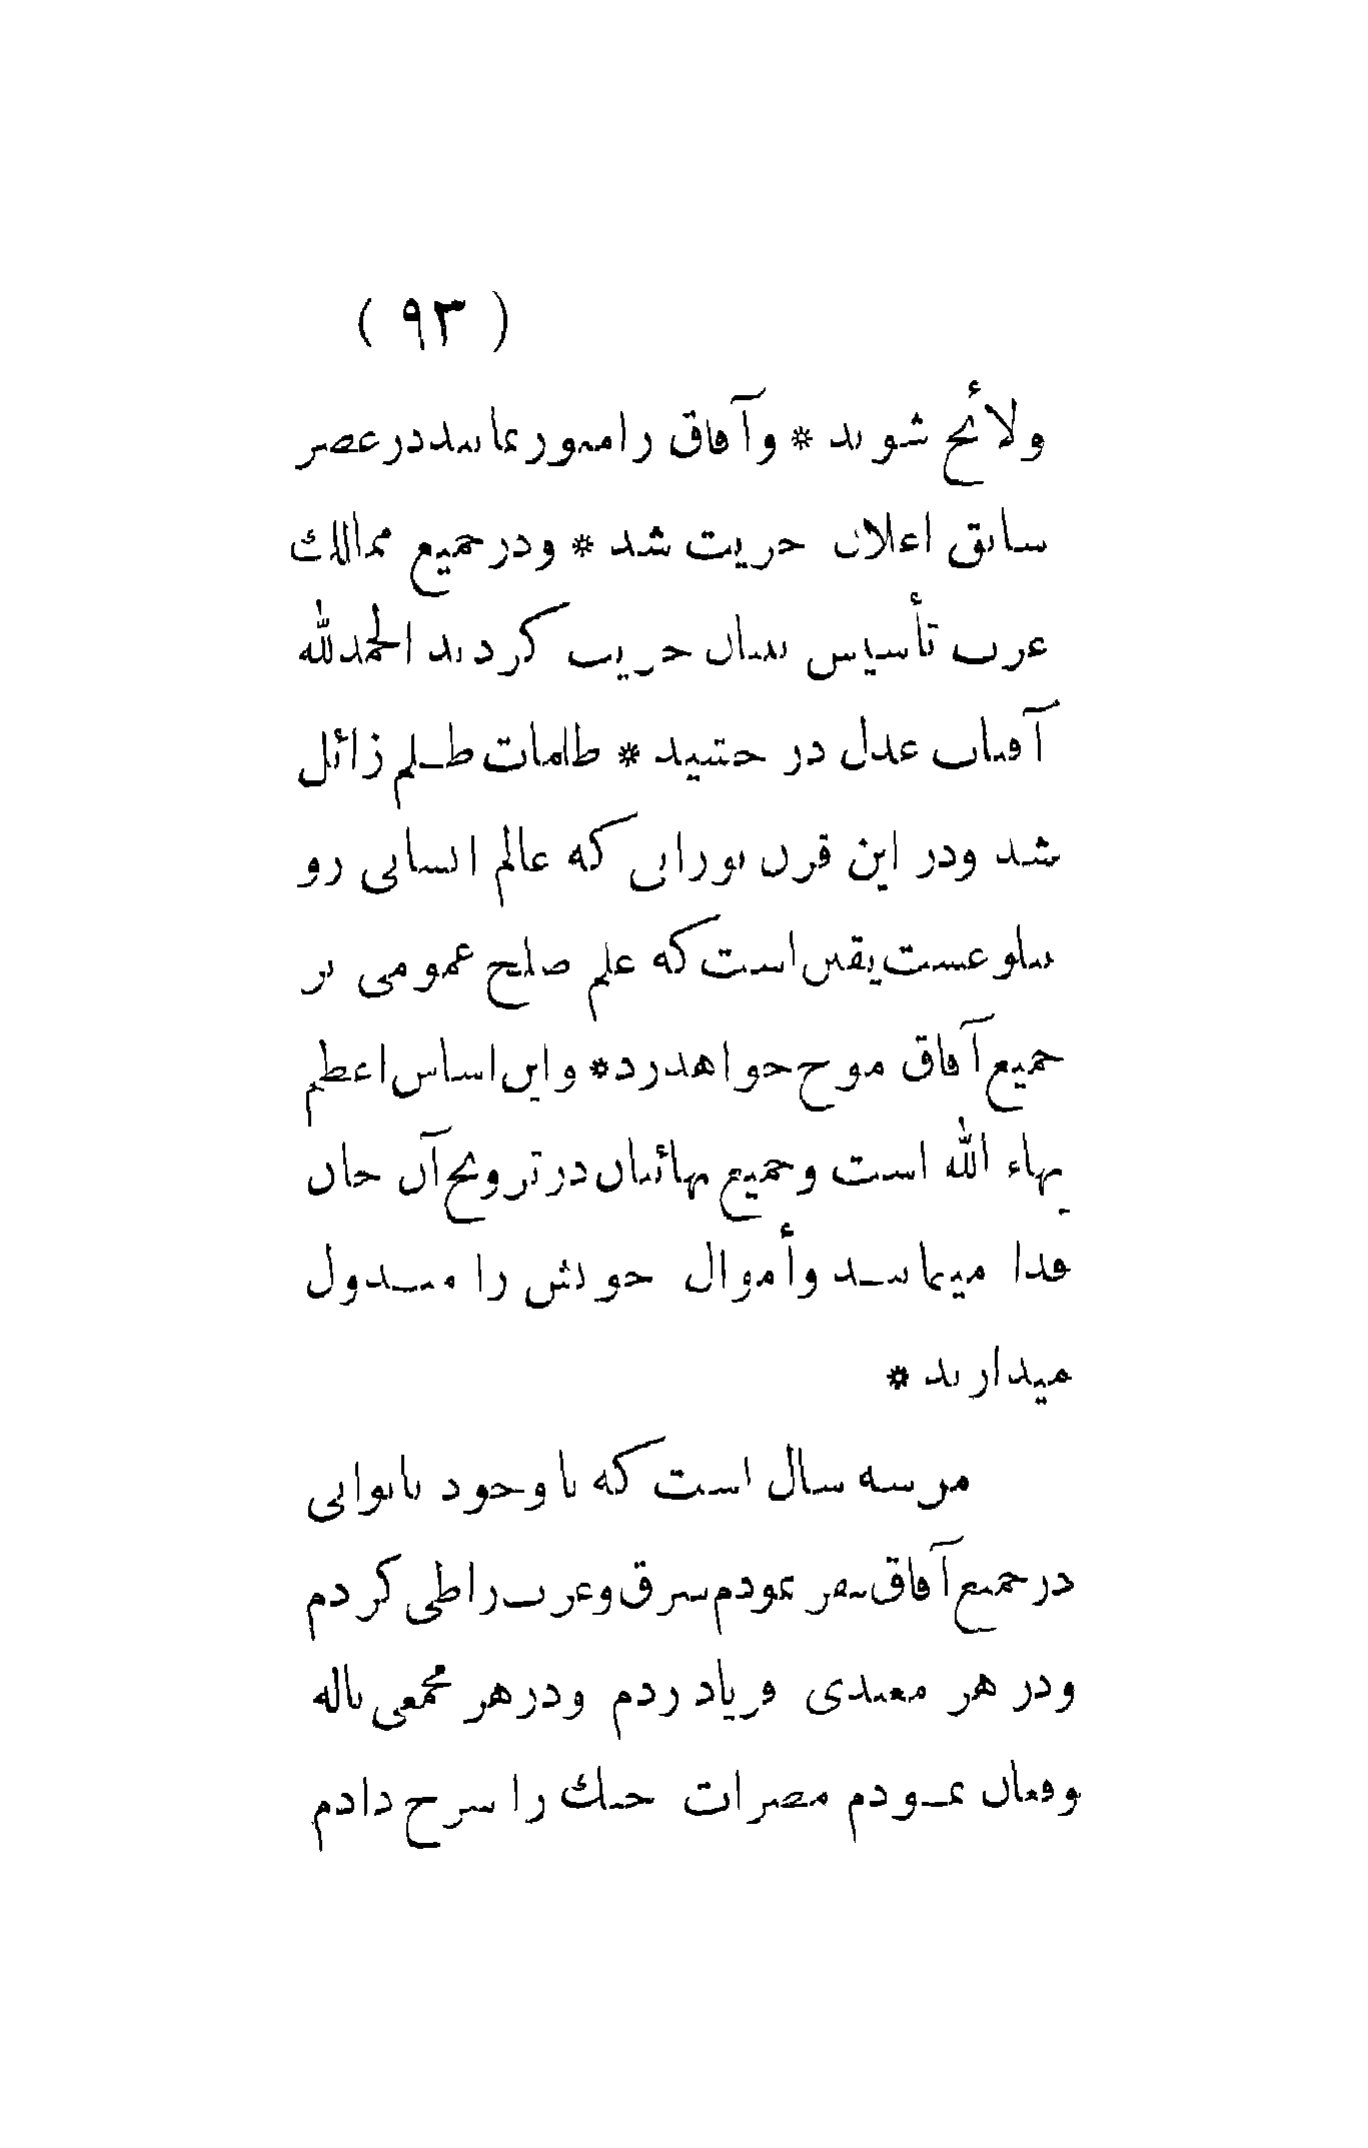 ( ٩٣ )
ولأئح شوند * وآفاق را منور نمایند در عصر
سابق اعلان حریت شد * ودر جمیع ممالك
غرب تأسیس بنیان حریت کردند الحمدلله
آفتاب عدل درخشید * ظلمات ظلم زائل
شد ودر این قرن نورانی که عالم انسانی رو
ببلوغست یقین است که علم صلح عمومی بر
جمیع آفاق موج خواهد زد * واین اساس اعظم
بهاء الله است وجمیع بهائیان در ترویج آن جان
فدا مینمایند وأموال خویش را مبذول
میدارند *
من سه سال است که با وجود ناتوانی
در جمیع آفاق سفر نمودم شرق وغرب را طی کردم
ودر هر معبدی فریاد زدم ودر هر مجمعی ناله
وفغان نمودم مضرات جنك را شرح دادم